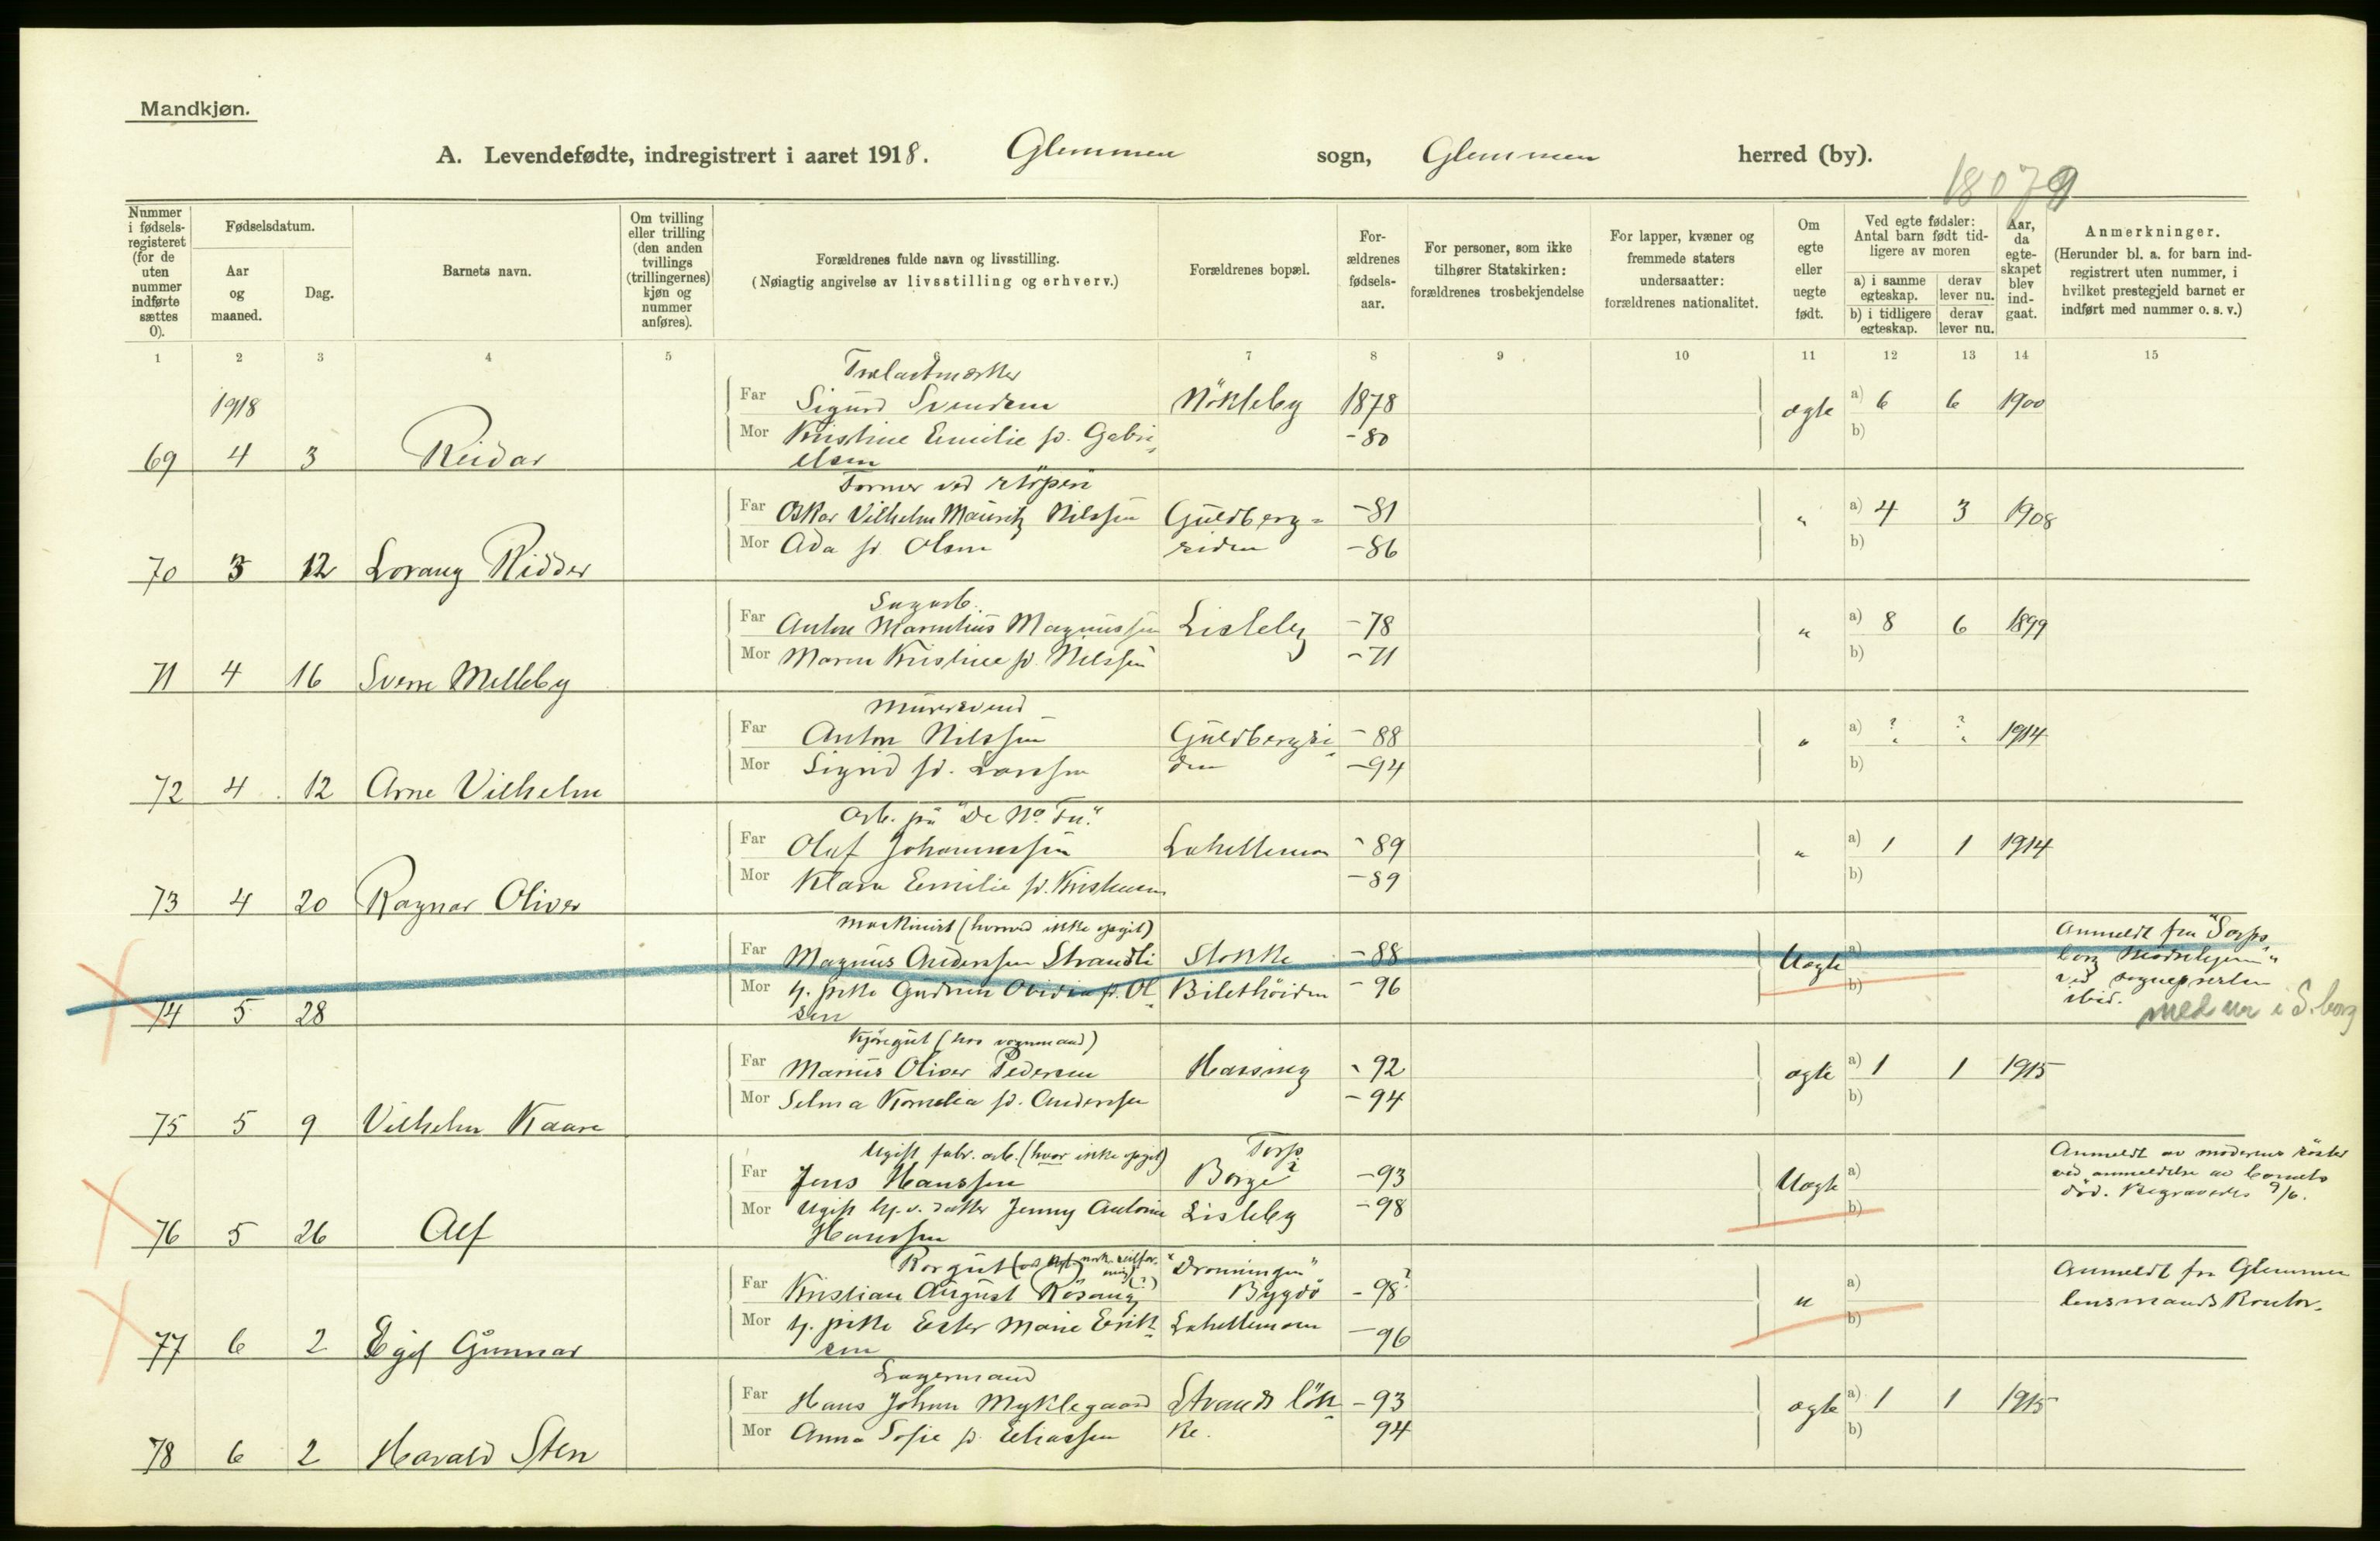 Mandkjøn.
A. Levendefødte, indregistrert i aaret 1918. Glemmen sogn, Glemmen herred (by).
18079
Nummer i fødselsregisteret (for de uten nummer indførte sættes 0).
Fødselsdatum.
Aar og maaned.
Dag.
Barnets navn.
Om tvilling eller trilling (den anden tvillings (trillingernes) kjøn og nummer anføres).
Forældrenes fulde navn og livsstilling.
(Nøiagtig angivelse av livsstilling og erhverv.)
Forældrenes bopæl.
Forældrenes fødselsaar.
For personer, som ikke tilhører Statskirken: forældrenes trosbekjendelse
For lapper, kvæner og fremmede staters undersaatter: forældrenes nationalitet.
Om egte eller uegte født.
Ved egte fødsler: Antal barn født tidligere av moren
a) i samme egteskap.
derav lever nu.
b) i tidligere egteskap.
derav lever nu.
Aar, da egteskapet blev indgaat.
Anmerkninger.
(Herunder bl. a. for barn indregistrert uten nummer, i hvilket prestegjeld barnet er indført med nummer o. s. v.)
1 2 3 4 5 7 8 9 10 11 12 13 14 15
Trælastmærker
1918
Far Sigurd Svendsen Nökleby 1878 ægte a) 6 6 1900
Mor Kristine Emilie fd. Gabri- -80 b)
69 4 3 Reidar elsen
Former ved støperi
Far Oskar Vilhelm Mauritz Nilssen Guldberg- -81 " a) 4 3 1908
Mor Ada fd. Olsen siden -86 b)
70 3 12 Lorang Ridder
Sagarb.
Far Anton Marentius Magnussen Lisleby -78 " a) 8 6 1899
Mor Maren Kristine fd. Nilssen -71 b)
71 4 16 Sverre Melleby
Murersvend
Far Anton Nilssen Guldbergsi- -88 " a) ? ? 1914
Mor Sigrid fd. Larssen den -94 b)
72 4 12 Arne Vilhelm
Arb. på "De No. Fa."
Far Olaf Johannessen Lahellemoen -89 " a) 1 1 1914
Mor Klara Emilie fd. Kristensen -89 b)
73 4 20 Ragnar Oliver
Maskinist (hvorved ikke opgit) Anmeldt fra "Sarps-
Far Magnus Anderssen Strandli Stokke -88 Uægte a) borg Mødrehjem"
Mor tj. pike Gudrun Ovidia fd. Ol- Bilethöiden -96 b) ved sognepresten
74 5 28 sen ibid.
med nr i S.borg
Kjöregut (hos vognmand)
Far Marius Oliver Pedersen Hassing -92 ægte a) 1 1 1915
Mor Selma Kornelia fd. Anderssen -94 b)
75 5 9 Vilhelm Kaare
Ugift fabr. arb. (hvor ikke opgit) Torp Anmeldt av moderens söster
Far Jens Hanssen Borge ? -93 Uægte a) ved anmeldelse av barnets
Mor Ugift hj. v. datter Jenny Antonie Lisleby -98 b) död. Begravedes 9/6.
76 5 26 Alf Hanssen
Korgut "Dronningen" Anmeldt fra Glemmen
Far Kristian August Rösang (?) Bygdö -98? " a) lensmandskontor.
Mor tj. pike Ester Marie Erik- Lahellemoen -96 b)
77 6 2 Egil Gunnar sen
Lagermand
Far Hans Johan Myklegaard Strandslök- -93 ægte a) 1 1 1915
Mor Anna Sofie fd. Eliassen ke. 94 b)
78 6 2 Harald Sten